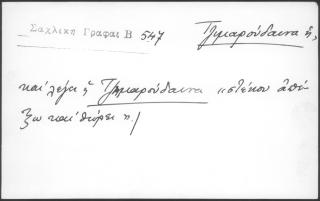 Σαχλίκη Γραφαι Β 547
Τζιμαρούδαινα ἡ,
καὶ λέγει ἡ Τζιμαρούδαινα «στέκου ἀπέ-
ξω καὶ θώρει